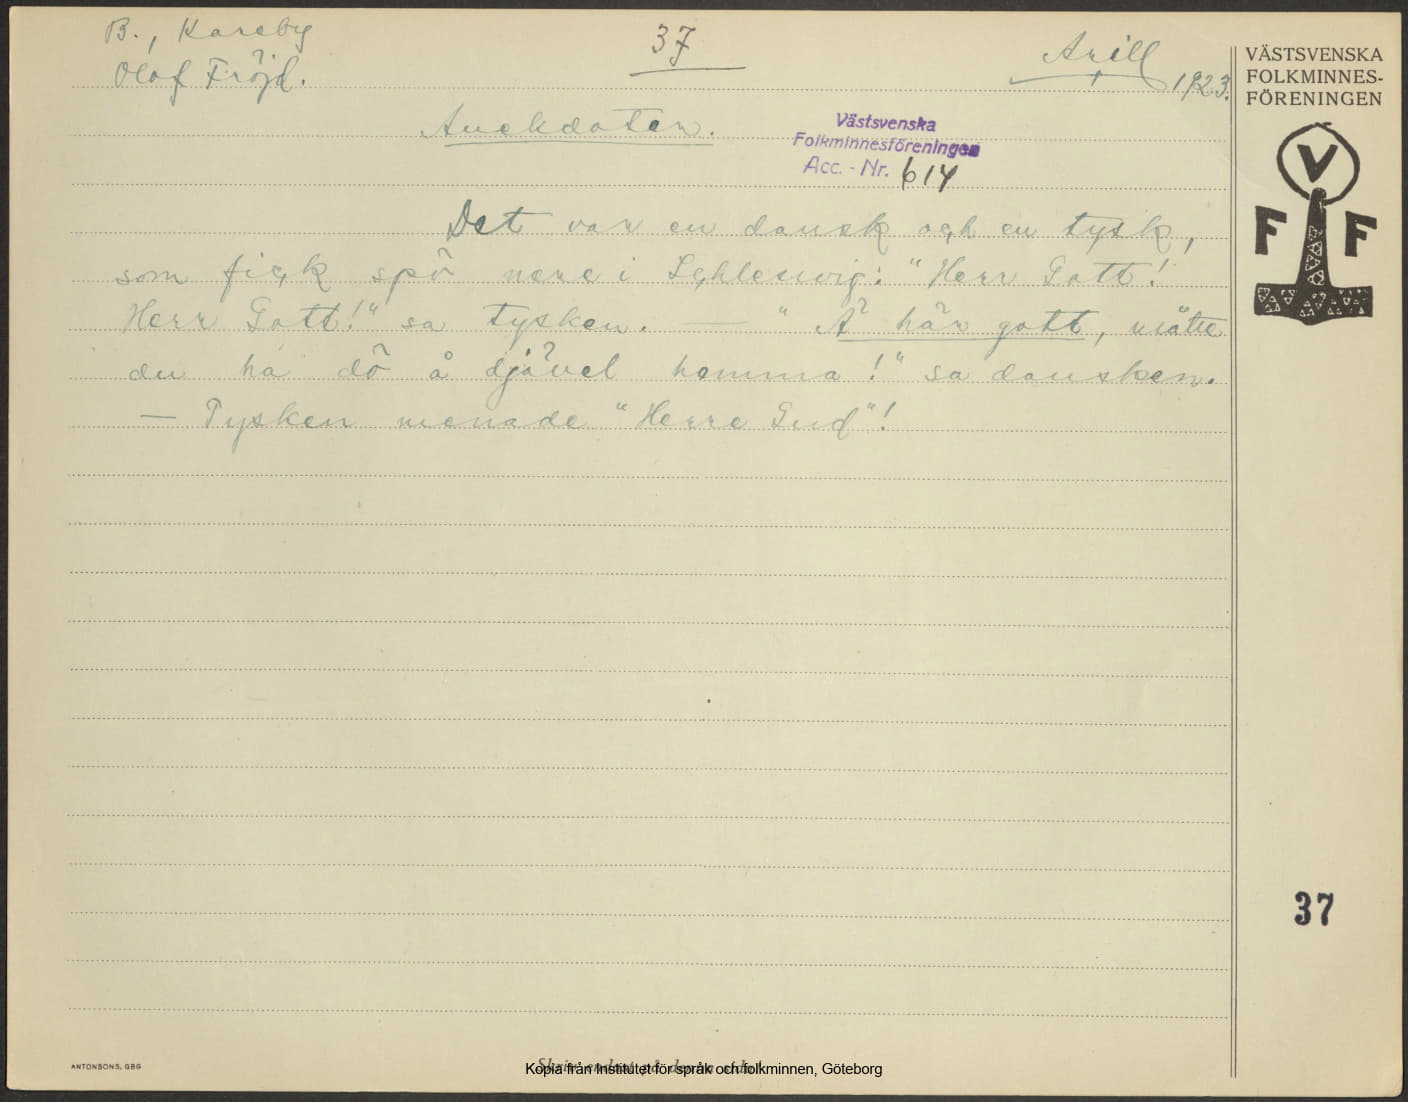 B., Kareby
Olof Fröjd.
37
Arill
1923.
VÄSTSVENSKA
FOLKMINNES-
FÖRENINGEN
Anekdoten.
Västsvenska
Folkminnesföreningen
Acc. - Nr. 614
V
F F
Det var en dansk och en tysk,
som fick spö nere i Schleswig: "Herr Gott!
Herr Gott!" sa tysken. — "Ä här gott, måtte
du ha dö å djävel hemma!" sa dansken.
— Tysken menade "Herre Gud"!
37
ANTONSONS, GBG
Kopia från Institutet för språk och folkminnen, Göteborg